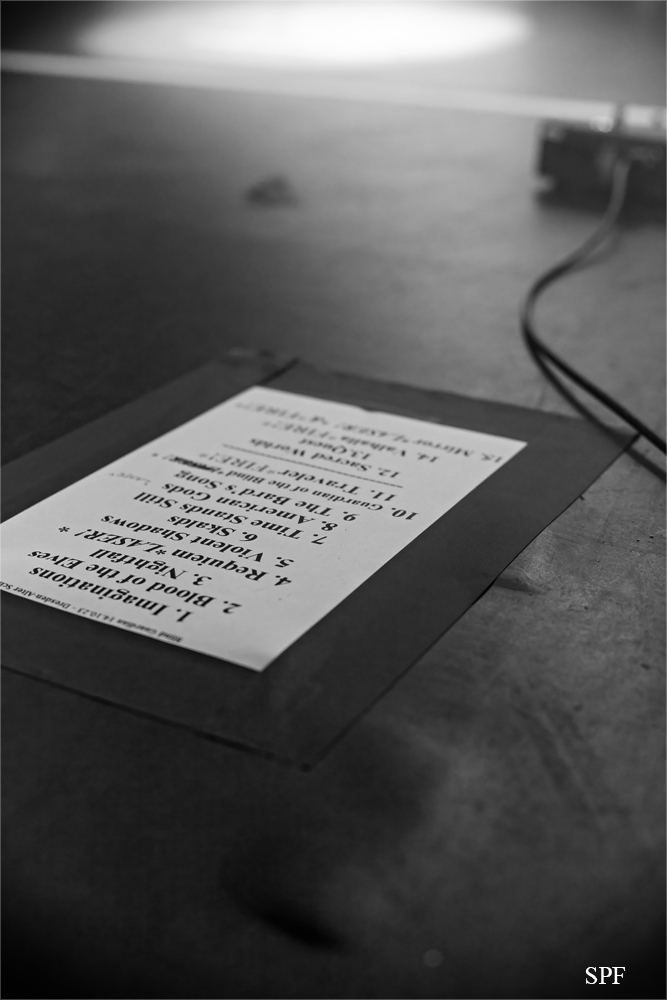 Blind Guardian 14.10.23 - Dresden-Alter Sch
1. Imaginations
2. Blood of the Elves
3. Nightfall
4. Requiem *LASER!*
5. Violent Shadows
6. Skalds
7. Time Stands Still
8. American Gods
9. The Bard's Song
10. Guardian of the Blind
11. Traveler *FIRE!*
12. Sacred Worlds
13.Quest
14. Valhalla *FIRE!*
15. Mirror *LASER! & *FIRE!*
SPF